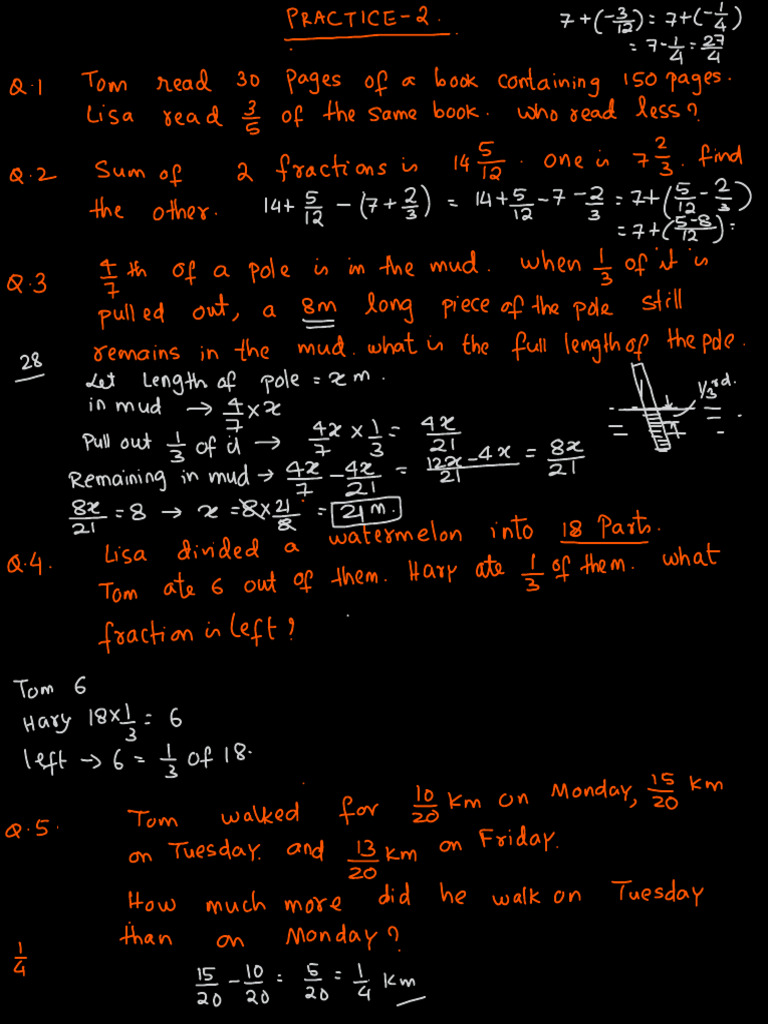 PRACTICE-2.
7+(-3/12) = 7+(-1/4)
= 7-1/4 = 27/4
Q.1 Tom read 30 pages of a book containing 150 pages.
Lisa read 3/5 of the same book. who read less?
Q.2 Sum of 2 fractions is 14 5/12. one is 7 2/3. find
the other. 14+5/12-(7+2/3) = 14+5/12-7-2/3 = 7+(5/12-2/3)
= 7+(5-8/12) =
Q.3 4/7 th of a pole is in the mud. when 1/3 of it is
pulled out, a 8m long piece of the pole still
remains in the mud. what is the full length of the pole.
28
Let Length of pole = x m.
1/3rd.
in mud → 4/7 × x
Pull out 1/3 of it → 4x/7 × 1/3 = 4x/21
Remaining in mud → 4x/7 - 4x/21 = 12x-4x/21 = 8x/21
8x/21 = 8 → x = 8×21/8 = 21m.
Q.4. Lisa divided a watermelon into 18 Parts.
Tom ate 6 out of them. Hary ate 1/3 of them. what
fraction is left?
Tom 6
Hary 18×1/3 = 6
left → 6 = 1/3 of 18.
Q.5. Tom walked for 10/20 km on Monday, 15/20 km
on Tuesday and 13/20 km on Friday.
How much more did he walk on Tuesday
than on Monday?
1/4
15/20 - 10/20 = 5/20 = 1/4 km